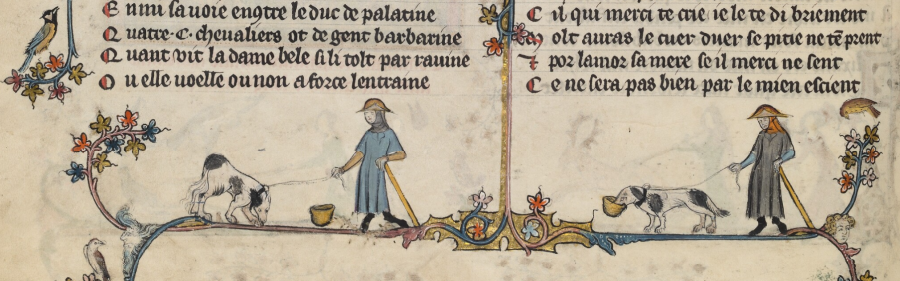 E nmi sa uoie engtre le duc de palatine
Q uatre .C. cheualiers ot de gent barbarine
Q uant vit la dame bele si li tolt par rauine
O u elle uoelle ou non a force lentraine
C il qui merci te crie ie le te di briement
M olt auras le cuer duer se pitie ne tẽ prent
⁊ por lamor sa mere se il merci ne sent
C e ne sera pas bien par le mien escient